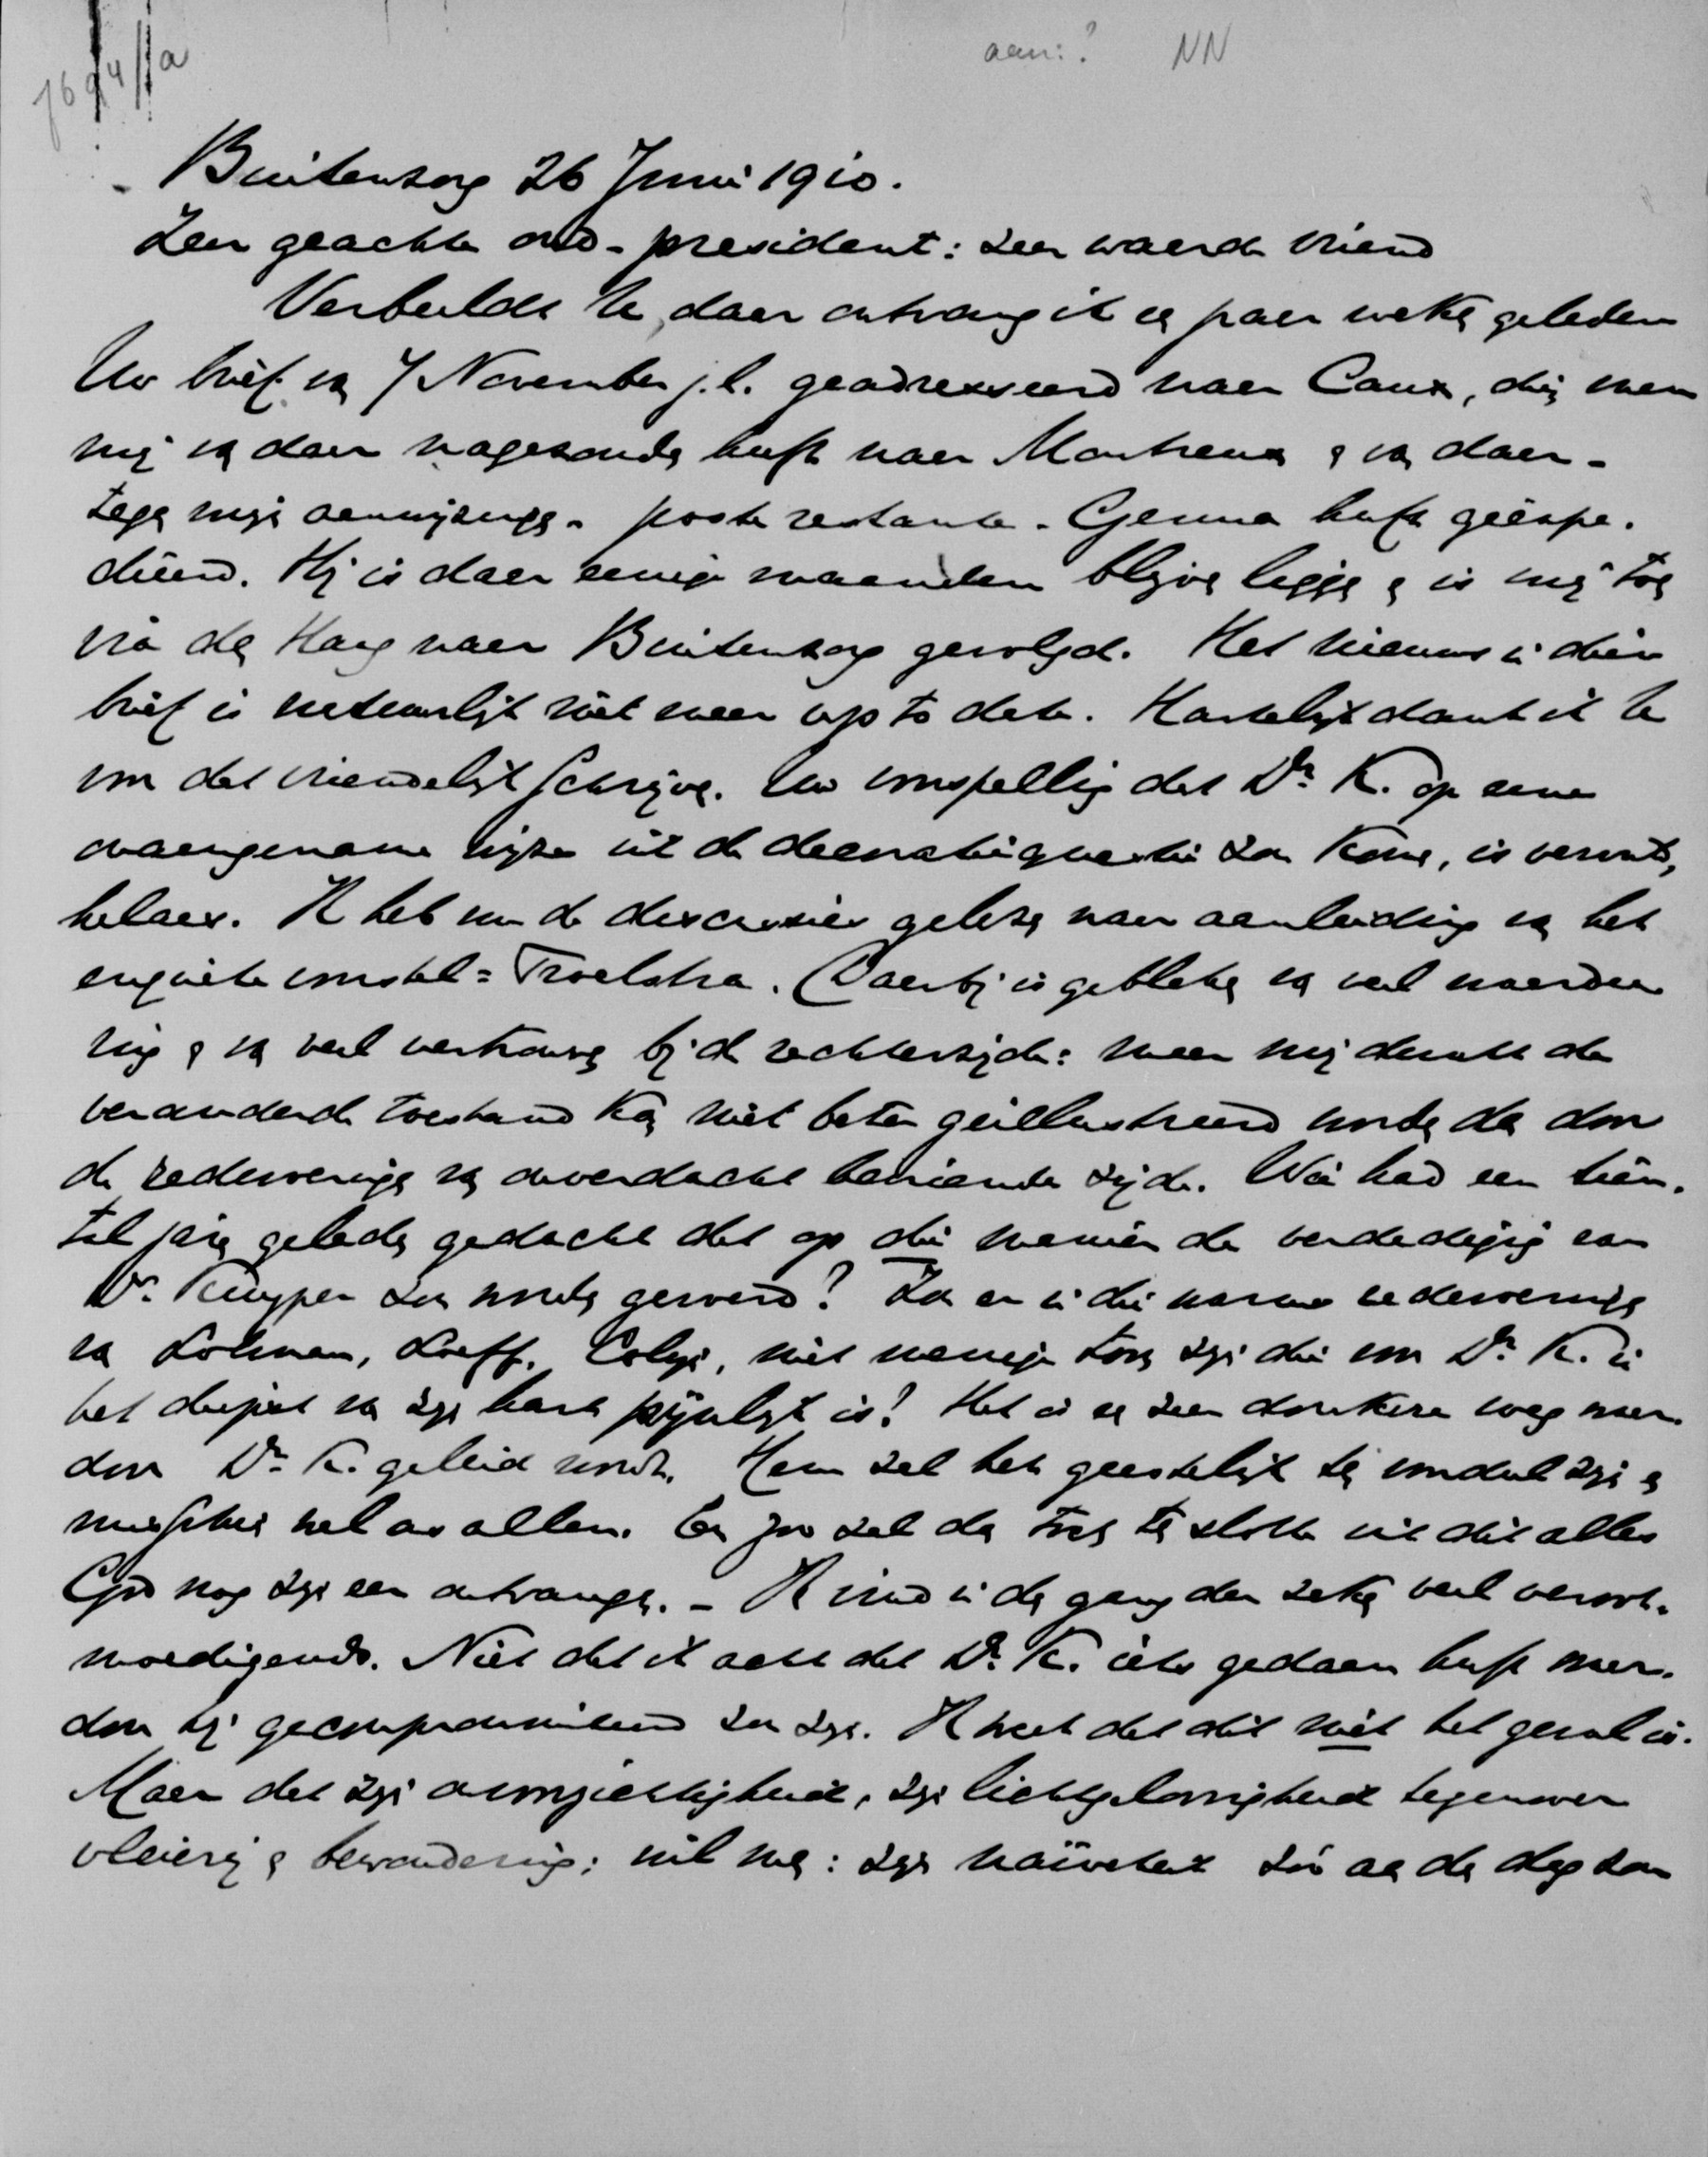 aan: ? NN
7694/1a
Buitenzorg 26 Juni 1910.
Zeer geachte oud-president: zeer waarde Vriend
Verbeeld U, daar ontvang ik een paar weken geleden
Uw brief van 7 November j.l. geadresseerd naar Caux, dien men
mij van daar nagezonden heeft naar Montreux en van daar -
tegen mijn aanwijzingen - poste restante - Genua heeft geëxpe-
diëerd. Hij is daar eenige maanden blijven liggen en is mij toen
via den Haag naar Buitenzorg gevolgd. Het nieuws in dien
brief is natuurlijk niet meer up to date. Hartelijk dank ik U
voor dat vriendelijk schrijven. Uw voorspelling dat Dr. K. op eene
onaangename wijze uit de decoratiequestie zou komen, is vervuld,
helaas. Ik heb nu de discussies gelezen naar aanleiding van het
enquête voorstel = Troelstra. Daarbij is gebleken van veel waardee
ring en van veel vertrouwen bij de rechterzijde: maar mij dunkt de
veranderde toestand kan niet beter geïllustreerd worden dan door
de redevoeringen van onverdacht bevriende zijde. Wie had een tien-
tal jaren geleden gedacht dat op die manier de verdediging van
Dr. Kuyper zou worden gevoerd? Zou er in die warme redevoeringen
van Lohman, Loeff, Colijn, niet menige toon zijn die voor Dr. K. in
het diepst van zijn hart pijnlijk is! Het is een zeer donkere weg waar-
door Dr. K. geleid wordt. Hem zal het geestelijk ten voordeel zijn en
misschien wel ons allen. En zoo zal dan toch ten slotte uit dit alles
God nog zijn eer ontvangen. - Ik vind in den gang der zaken veel veroot-
moedigends. Niet dat ik acht dat Dr. K. iets gedaan heeft waar-
door hij gecompromitteerd zou zijn. Ik weet dat dit niet het geval is.
Maar dat zijn onvoorzichtigheid, zijn lichtgeloovigheid tegenover
vleierij en bewondering; wil men: zijn naïveteit zóó aan den dag zou